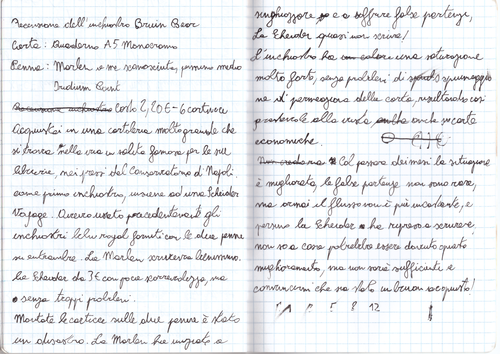 Recensione dell'inchiostro Bruin Beer
Carta: Quaderno A5 Monocromo
Penne: Marlen a me sconosciuta, pennino medio
Iridium Point
Costo 2,20€ - 6 cartucce
Acquistai in una cartoleria molto grande che
si trova nella via un solito famosa per le sue
librerie, nei pressi del Conservatorio di Napoli,
come primo inchiostro, insieme ad una Sheaffer
Vafage. Avevo usato precedentemente gli
inchiostri blu royal forniti con le due penne
su entrambe. La Marlen scriveva benissimo.
La Sheaffer da 3€ con poca scorrevolezza, ma
senza troppi problemi.
Montate le cartucce sulle due penne è stato
un disastro. La Marlen ha iniziato a
singhiozzare e a soffrire false partenze,
La Sheaffer quasi non scrive!
L'inchiostro ha una saturazione
molto forte, senza problemi di spiumaggio
ne di permeazione della carta, risultando così
gradevole alla vista anche su carte
economiche.
Col passare dei mesi la situazione
è migliorata, le false partenze non sono rare,
ma ormai il flusso non è più incostante, e
persino la Sheaffer ha ripreso a scrivere,
non so a cosa potrebbe essere dovuto questo
miglioramento, ma non sarà sufficiente a
convincermi che sia stato un buon acquisto!
5 8 12